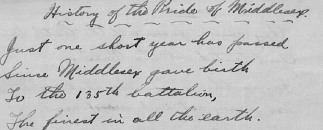 History of the Pride of Middlesex.
Just one short year has passed
Since Middlesex gave birth
To the 135th battalion,
The finest in all the earth.